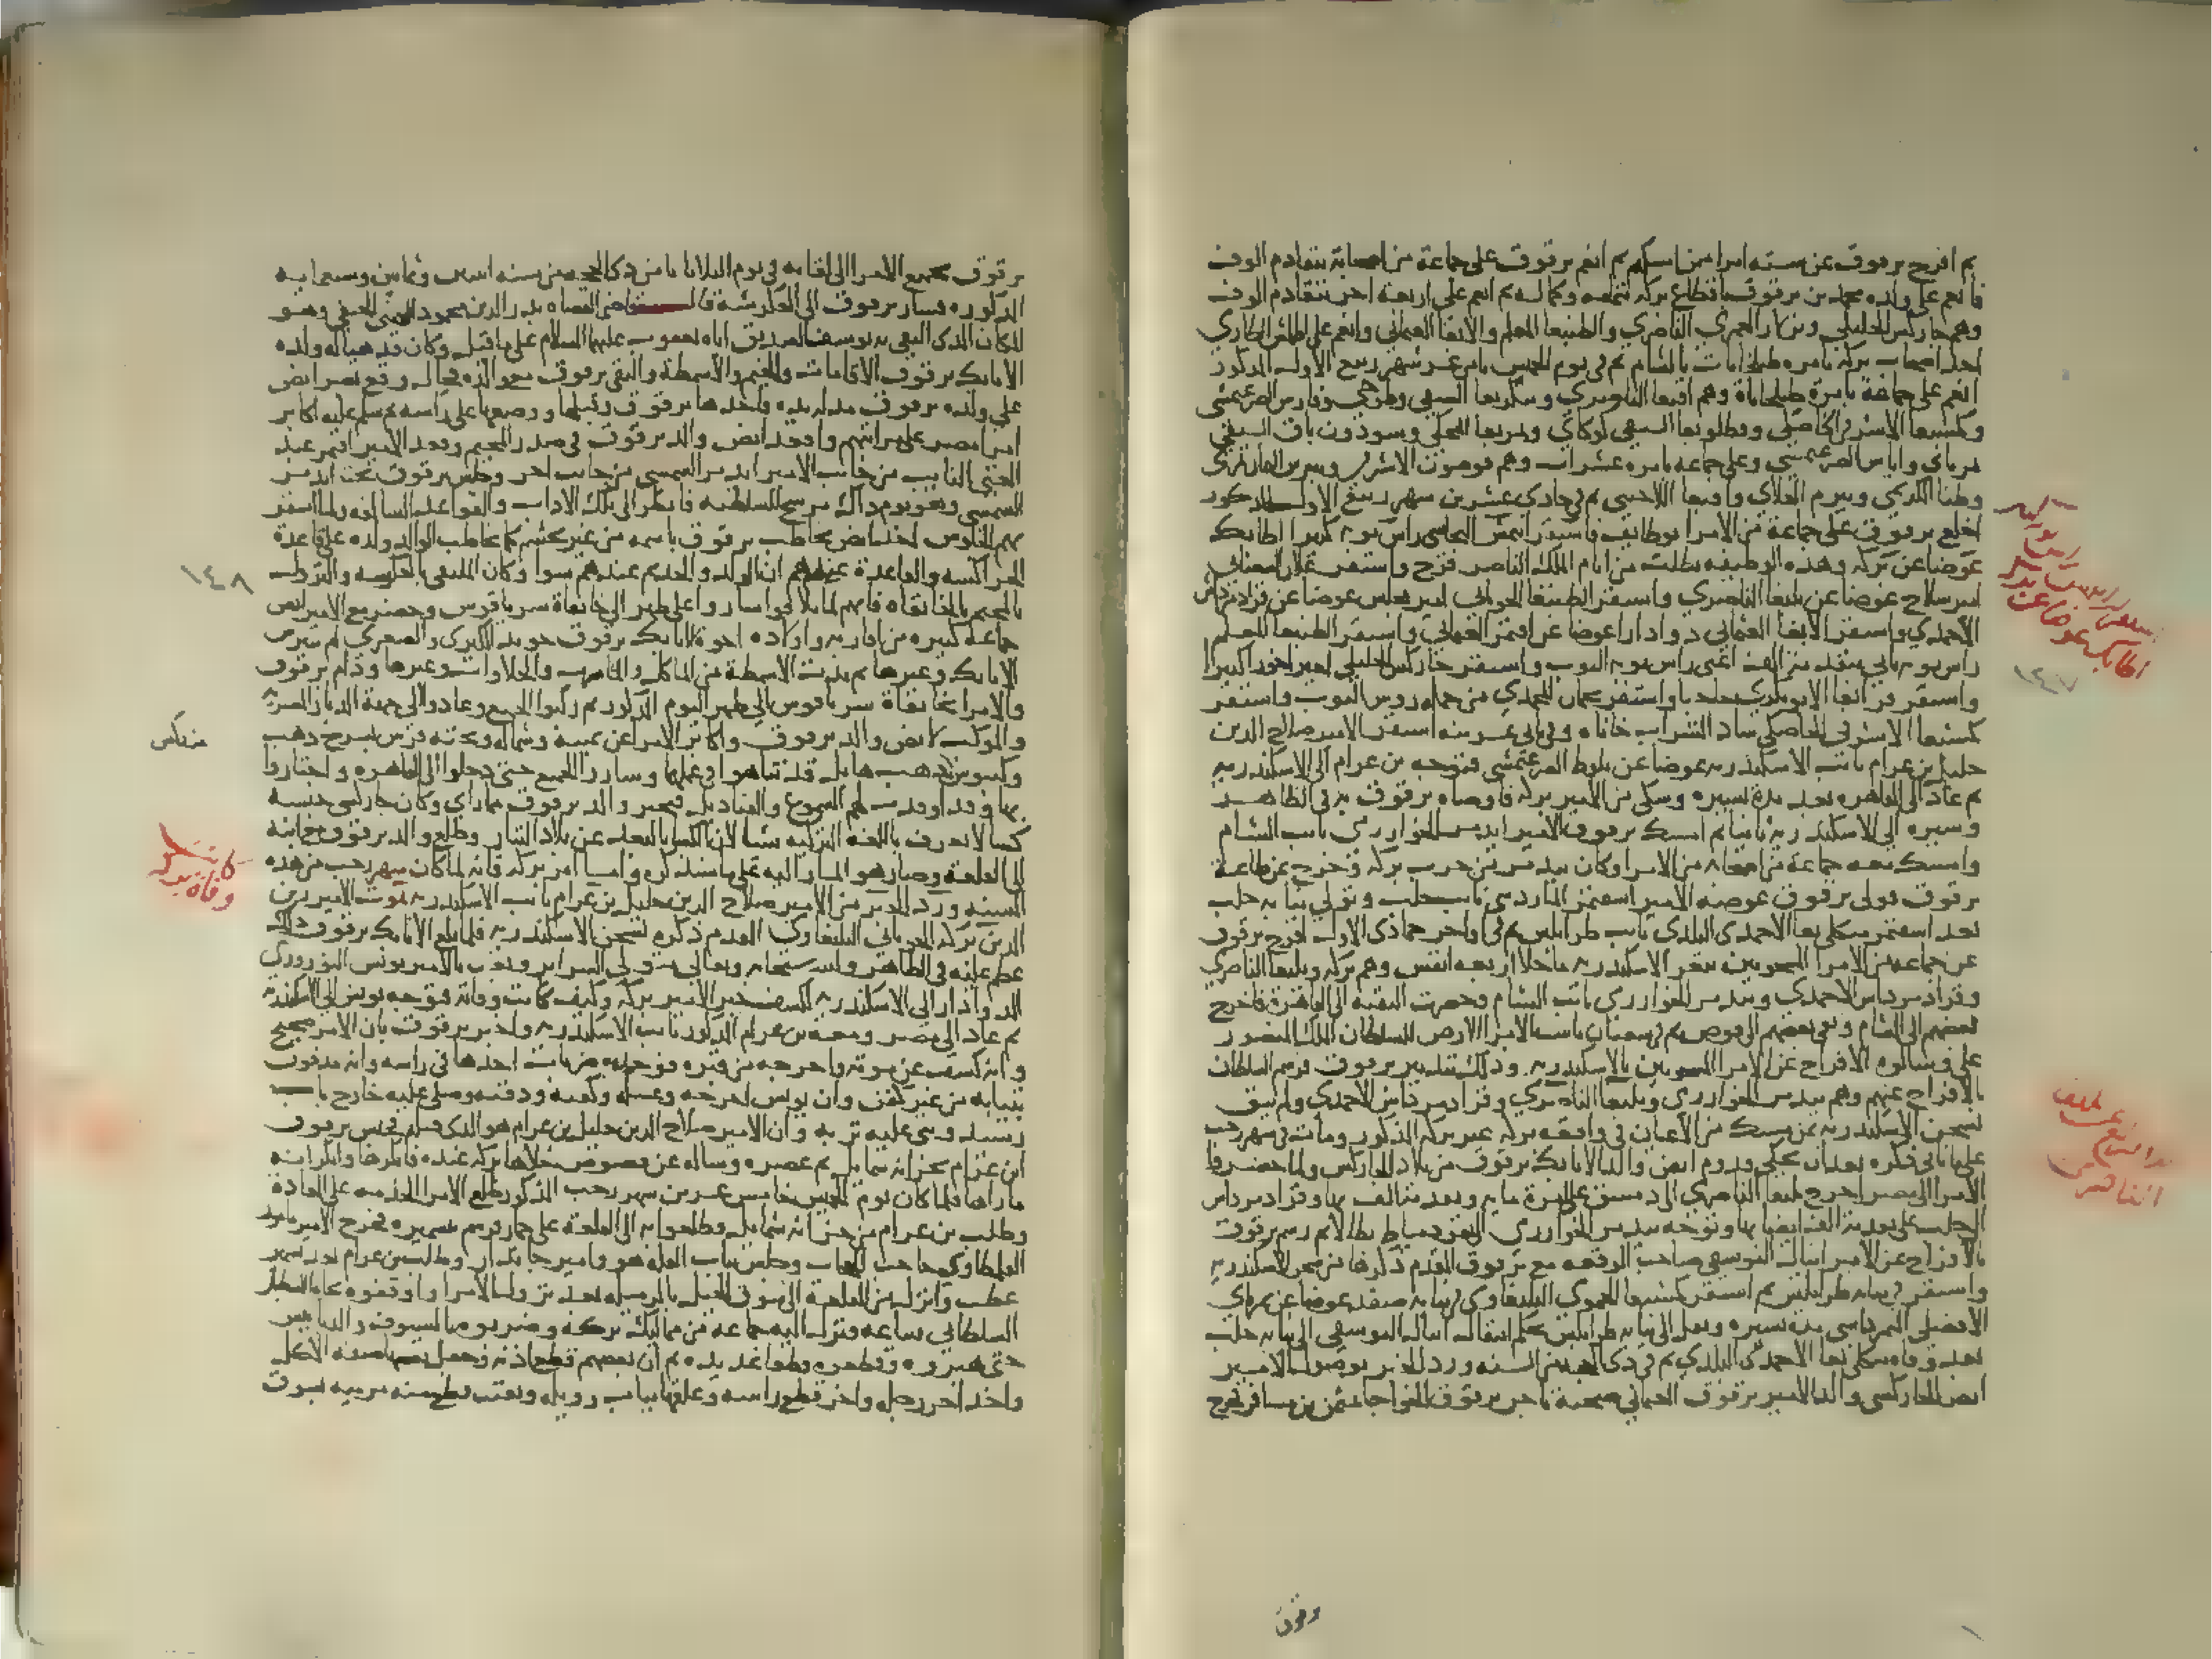 ثم افرج برقوق عن سته امرا ممن امسكهم ثم انعم برقوق على جماعة من اصحابه بتقادم الوف
فانعم على ولده محمد بن برقوق باقطاع بركه بتمامه وكماله ثم انعم على اربعة اخر بتقادم الوف
وهم جاركس الخليلي وبزلار العمري الناصري والطنبغا المعلم والابغا العثماني وانعم على اطلمش الطازي
احد اصحاب بركه بامره طبلخانات بالشام ثم في يوم الخميس ثامن عشر شهر ربيع الاول المذكور
انعم على جماعة بامرة طبلخاناة وهم اقبغا الناصري وتنكزبغا السيفي وطوجي وفارس الصرغتمشي
وكمشبغا الاشرفي الخاصكي وقطلوبغا السيفي كوكاي وتمربغا المنجكي وسودون باق السيفي
تمرباي واياس الصرغتمشي وعلى جماعة بامره عشرات وهم قوصون الاشرفي وبيبرس التمان تمري
وطغا الكريمي وبيرم العلاي واقبغا اللاجيني ثم في حادي عشرين شهر ربيع الاول المذكور
اخلع برقوق على جماعة من الامرا بوظائف فاستقر ايتمش البجاسي راس نوبه كبيرا اطابك
عوضا عن بركه وهذه الوظيفه بطلت من ايام الملك الناصر فرج واستقر علان الشعباني
امير سلاح عوضا عن يلبغا الناصري واستقر الطنبغا الجوباني امير مجلس عوضا عن قرادمرداش
الاحمدي واستقر الابغا العثماني دوادارا عوضا عن اقتمر العثماني واستقر الطنبغا المعلم
راس نوبه ثاني بتقدمه الف اعني راس نوبه النوب واستقر جاركس الخليلي امير اخور كبيرا
واستقر قرابغا الابوبكري حاجبا واستقر بجمان المحمدي من جمله روس النوب واستقر
كمشبغا الاشرفي الخاصكي شاد الشراب خاناه وفي ثاني عشرينه استقر الامير صلاح الدين
خليل بن عرام نائب الاسكندريه عوضا عن بلوط الصرغتمشي فتوجه بن عرام الى الاسكندريه
ثم عاد الى القاهره بعد مدة يسيره وشكى من الامير بركه فاوصاه برقوق به في الظاهر
وسيره الى الاسكندريه ثانيا ثم امسك برقوق الامير بيدمر الخوارزمي نائب الشام
وامسك معه جماعة من اصحابه من الامرا وكان بيدمر من حزب بركه وخرج عن طاعة
برقوق فولى برقوق عوضه الامير اشقتمر المارديني نائب حلب وتولى نيابه حلب
بعد اشقتمر منكلى بغا الاحمدي البلدي نائب طرابلس ثم في اواخر جمادى الاول افرج برقوق
عن جماعه من الامرا المسجونين بثغر الاسكندريه ما خلا اربعه انفس وهم بركه ويلبغا الناصري
وقرادمرداش الاحمدي وبيدمر الخوارزمي نائب الشام وحضرت البقيه الى القاهرة فاخرج
بعضهم الى الشام ونفى بعضهم الى قوص ثم في شعبان باست الامرا الارض للسلطان الملك المنصور
علي وسالوه الافراج عن الامرا المسجونين بالاسكندريه وذلك بتدبير برقوق فرسم السلطان
بالافراج عنهم وهم بيدمر الخوارزمي ويلبغا الناصري وقرادمرداش الاحمدي ولم يبق
بسجن الاسكندريه ممن مسك من الاعيان في واقعه بركه غير بركه المذكور ومات في شهر رجب
على ما ياتي ذكره بعد ان نحكي قدوم انص والد الاتابك برقوق من بلاد الجاركس ولما حضروا
الامرا الى مصر اخرج يلبغا الناصري الى دمشق على امرة مايه وتقدمه الف بها وقرادمرداش
الى حلب على تقدمه الف ايضا بها وتوجه بيدمر الخوارزمي الى ثغر دمياط بطالا ثم رسم برقوق
بالافراج عن الامير اينال اليوسفي صاحب الوقعه مع برقوق المقدم ذكرها من سجن الاسكندريه
واستقر في نيابه طرابلس ثم استقر كمشبغا الحموي اليلبغاوي في نيابه صفد عوضا عن تمرباي
الافضلي التمرتاشي مدة يسيره ونقل الى نيابه طرابلس بحكم انتقال اينال اليوسفي الى نيابه حلب
بعد وفاه منكلى بغا الاحمدي البلدي ثم في ذي الحجه من السنه ورد الخبر بوصول الامير
انص الجاركسي والد الامير برقوق العثماني صحبة تاجر برقوق الخواجا عثمن بن مسافر فخرج
عوضا عن بركه
١٤٧
برقوق بجميع الامرا الى لقايه في يوم الثلاثا ثامن ذي الحجه من سنه اثنين وثمانين وسبعمايه
المذكوره فسار برقوق الى العكرشة قال قاضي القضاه بدر الدين محمود العيني الحنفي وهو
المكان الذي التقى به يوسف الصديق اباه يعقوب عليهما السلام على ما قيل وكان قد هيا له ولده
الاتابك برقوق الاقامات والخيم والاسمطة والتقى برقوق مع والده فحال وقع بصر انص
على ولده برقوق مد له يده فاخذها برقوق وقبلها ووضعها على راسه ثم سلم عليه اكابر
امرا مصر على مراتبهم واقعد انص والد برقوق في صدر المخيم وقعد الامير اقتمر عبد
الغني النائب من جانب الامير ايدمر الشمسي من جانب اخر وجلس برقوق تحت ايدمر
الشمسي وهو يوم ذاك مرشح للسلطنه فانظر الى تلك الاداب والقواعد السالفه ولما استقر
بهم الجلوس اخذ انص يخاطب برقوق باسمه من غير تحشم كما يخاطب الوالد ولده على قاعدة
الجراكسه والقاعدة عندهم ان الولد والخديم عندهم سوا وكان الملتقى بالعكرشه والنزول
بالمخيم بالخانقاه فانهم لما تلاقوا ساروا على ظهر الى خانقاة سرياقوس وحضر مع الامير انص
جماعة كبيره من اقاربه واولاده اخوة الاتابك برقوق خوند الكبرى والصغرى ام بيبرس
الاتابك وغيرها ثم مدت الاسمطة من الماكل والمشارب والحلاوات وغيرها ودام برقوق
والامرا بخانقاة سرياقوس الى ظهر اليوم المذكور ثم ركبوا الجميع وعادوا الى جهة الديار المصرية
والموكب لانص والد برقوق واكابر الامرا عن يمينه وشماله وتحته فرس بسرج ذهب
وكنبوش ذهب هايل قد تناهوا في عملها وسار الجميع حتى دخلوا الى القاهره واجتازوا
بها وقد اوقدت لهم الشموع والقناديل فتحير والد برقوق مما راى وكان جاركسي جنسه
كسا لا يعرف باللغه التركيه شيا لان الكسا بالبعد عن بلاد التتار وطلع والد برقوق مع ابنه
الى القلعة وصار هو المشار اليه على ما سنذكره واما امر بركه فانه لما كان شهر رجب من هذه
السنه ورد الخبر من الامير صلاح الدين خليل بن عرام نائب الاسكندريه بموت الامير زين
الدين بركه الجوباني اليلبغاوي المقدم ذكره بسجن الاسكندريه فلما بلغ الاتابك برقوق ذلك
عظم عليه في الظاهر والله سبحانه وتعالى متولي السراير وبعث بالامير يونس النوروزي
الدوادار الى الاسكندريه لكشف خبر الامير بركه وكيف كانت وفاته فتوجه يونس الى الاسكندريه
ثم عاد الى مصر ومعه بن عرام المذكور نائب الاسكندريه واخبر برقوق بان الامر صحيح
وانه كشف عن موته واخرجه من قبره فوجد به ضربات احدها في راسه وانه مدفون
بثيابه من غير كفن وان يونس اخرجه وغسله وكفنه ودفنه وصلى عليه خارج باب
رشيد وبنى عليه تربه وان الامير صلاح الدين خليل بن عرام هو الذي قتله فحبس برقوق
ابن عرام بخزانه شمايل ثم عصره وساله عن فصوص خلاها بركه عنده فانكرها وانكر انه
ما راها فلما كان يوم الخميس خامس عشرين شهر رجب المذكور طلع الامرا الخدمه على العادة
وطلب بن عرام من خزانه شمايل فطلعوا به الى القلعة على حمار فرسم بتسميره فخرج الامير مامور
القلمطاوي حاجب الحجاب وجلس بباب القله هو وامير جاندار وطلب بن عرام بعد تسمير
عطب وانزل من القلعة الى سوق الخيل بالرميله بعد نزول الامرا واوقفوه تجاه الاسطبل
السلطاني ساعه فنزل اليه جماعه من مماليك بركه وضربوه بالسيوف والدبابيس
حتى هبروه وقطعوه قطعا عديده ثم ان بعضهم قطع اذنه وجعل يعضها صفه الاكل
واخذ اخر رجله واخر قطع راسه وعلقها بباب زويله وبقيت قطع منه مرميه بسوق
كائنة
وفاة بركه
١٤٨